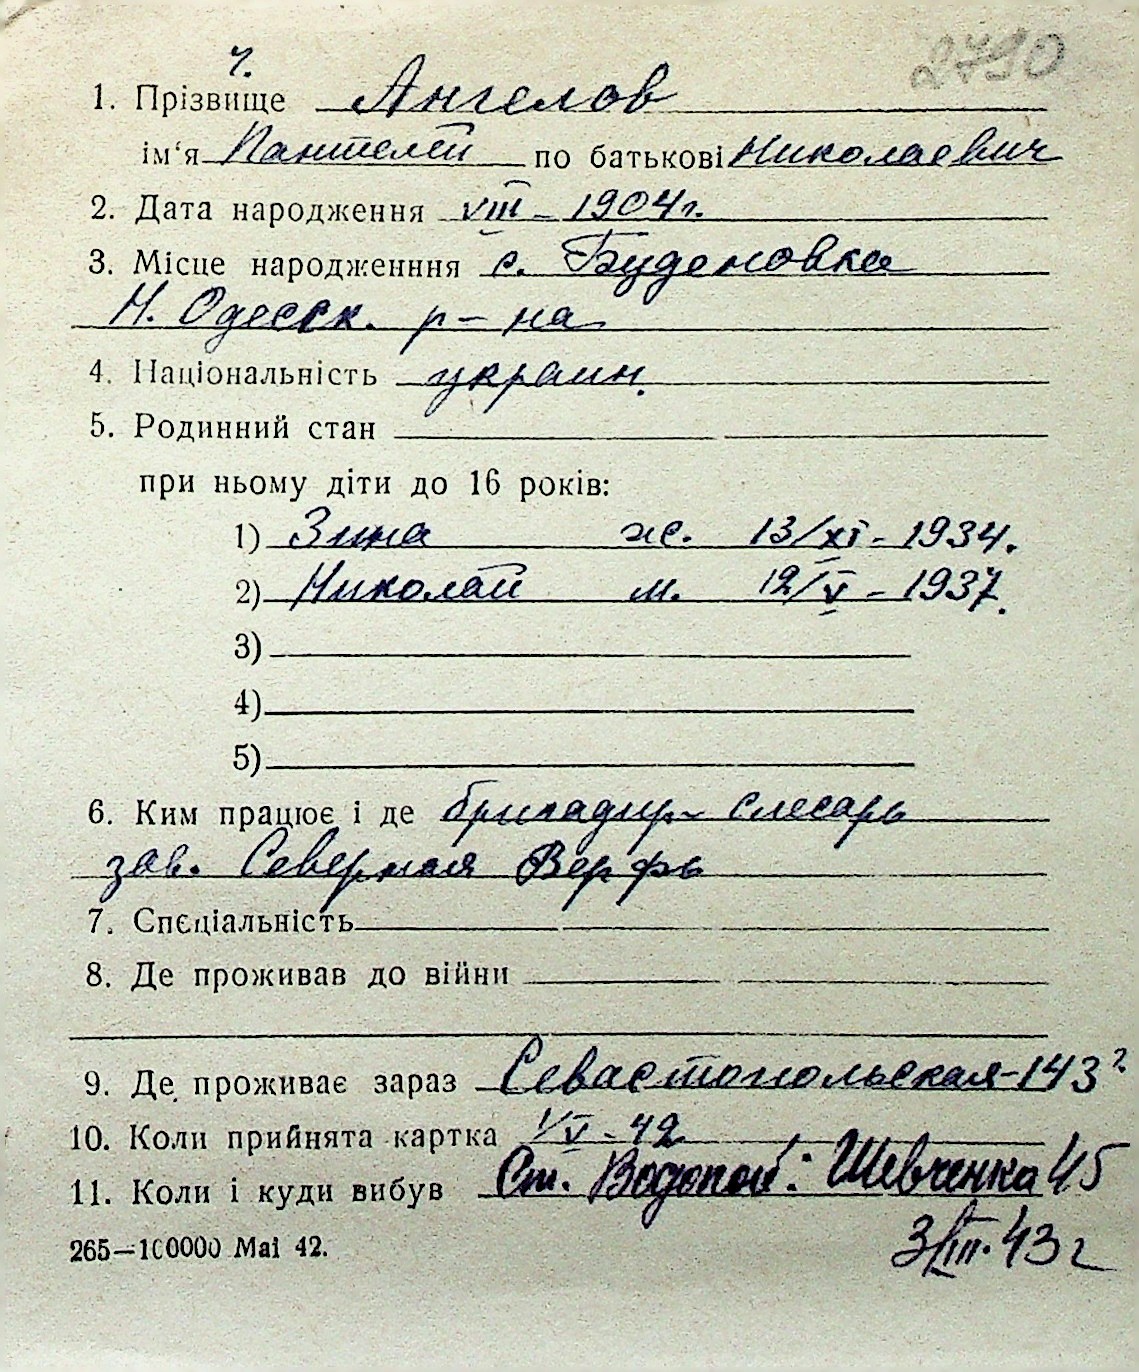 2790
ч.
1. Прізвище Ангелов
ім‘я Пантелей по батькові Николаевич
2. Дата народження VIII – 1904 г.
3. Місце народженння с. Буденовка
Н. Одесск. р-на
4. Національність украин.
5. Родинний стан
при ньому діти до 16 років:
1) Зина ж. 13/XI – 1934.
2) Николай м. 12/V – 1937.
3)
4)
5)
6. Ким працює і де бригадир – слесарь
зав. Северная Верфь
7. Спєціальність
8. Де проживав до війни
9. Де проживає зараз Севастопольская – 143
10. Коли прийнята картка 1/V – 42
11. Коли і куди вибув Ст. Водопой: Шевченка 45
265—100000 Маі 42.
3/III. 43 г